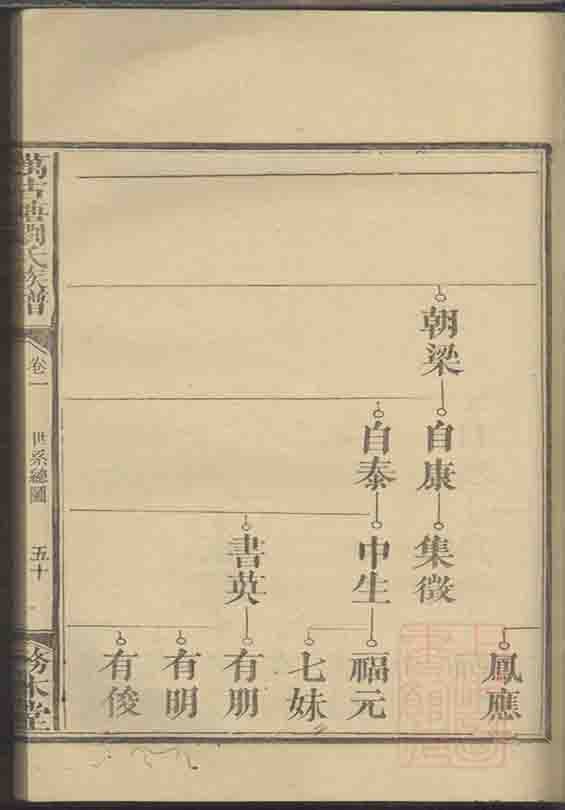 朝梁
自康
集徵
自泰
中生
書英
鳳應
福元
七妹
有朋
有明
有俊
萬古塘劉氏族譜
卷一
世系總圖
五十
務本堂